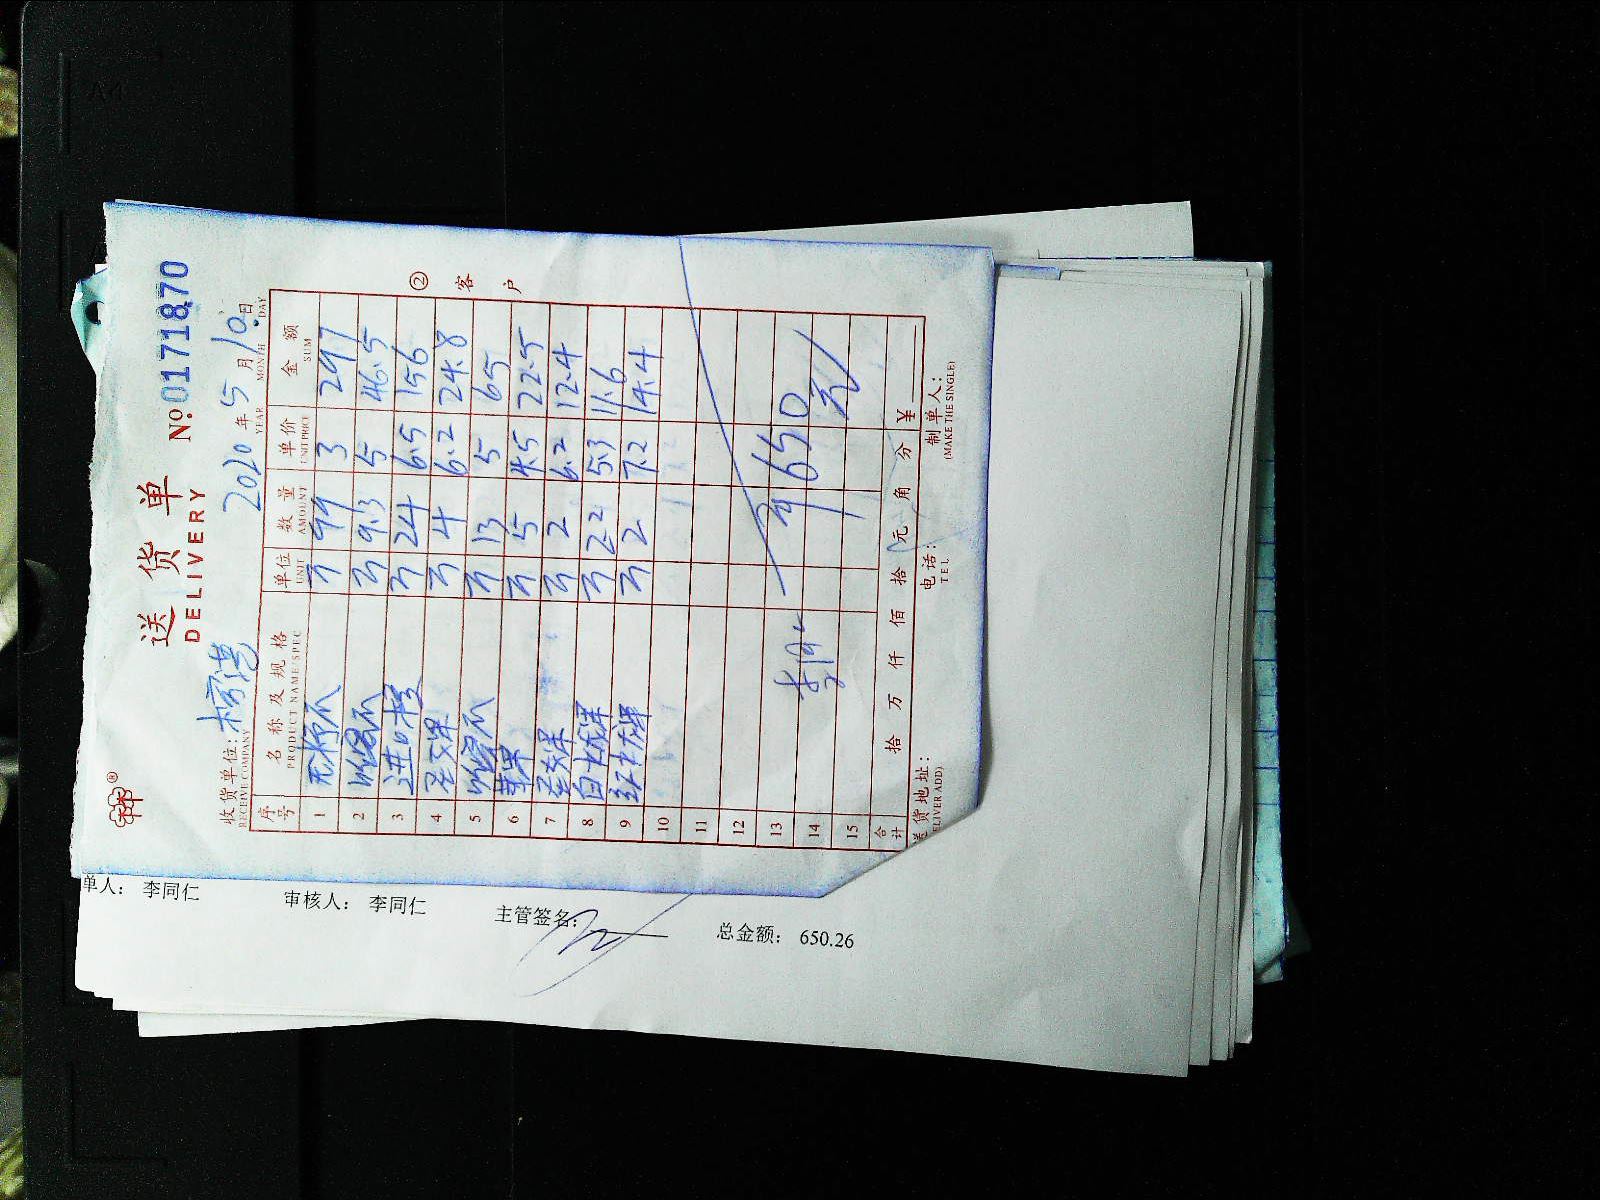 送货单
DELIVERY
№ 0171870
收货单位:
RECEIVE COMPANY
2020 年 5 月 10 日
YEAR MONTH DAY
序号 名称及规格 单位 数量 单价 金额
PRODUCT NAME/SPEC UNIT AMOUNT UNIT PRICE SUM
1 99 3 297
2 哈密瓜 9.3 5 46.5
3 进口橙 24 6.5 156
4 圣女果 4 6.2 24.8
5 哈密瓜 13 5 65
6 苹果 5 4.5 22.5
7 圣女果 2 6.2 12.4
8 2.2 5.3 11.6
9 红火龙果 2 7.2 14.4
10
11
12
13 650
14 元
15
合计 拾 万 仟 佰 拾 元 角 分 ¥
送货地址: 电话: 制单人:
DELIVER ADD) TEL (MAKE THE SINGLE)
② 客户
单人: 李同仁 审核人: 李同仁 主管签名: 总金额: 650.26
A4